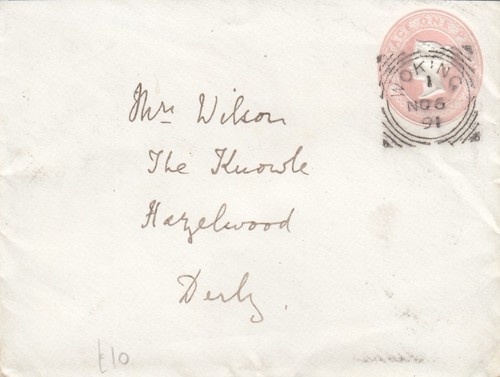 POSTAGE ONE PENNY
WOKING
1
NO 6
91
Mrs Wilson
The Knowle
Hazelwood
Derby.
£10